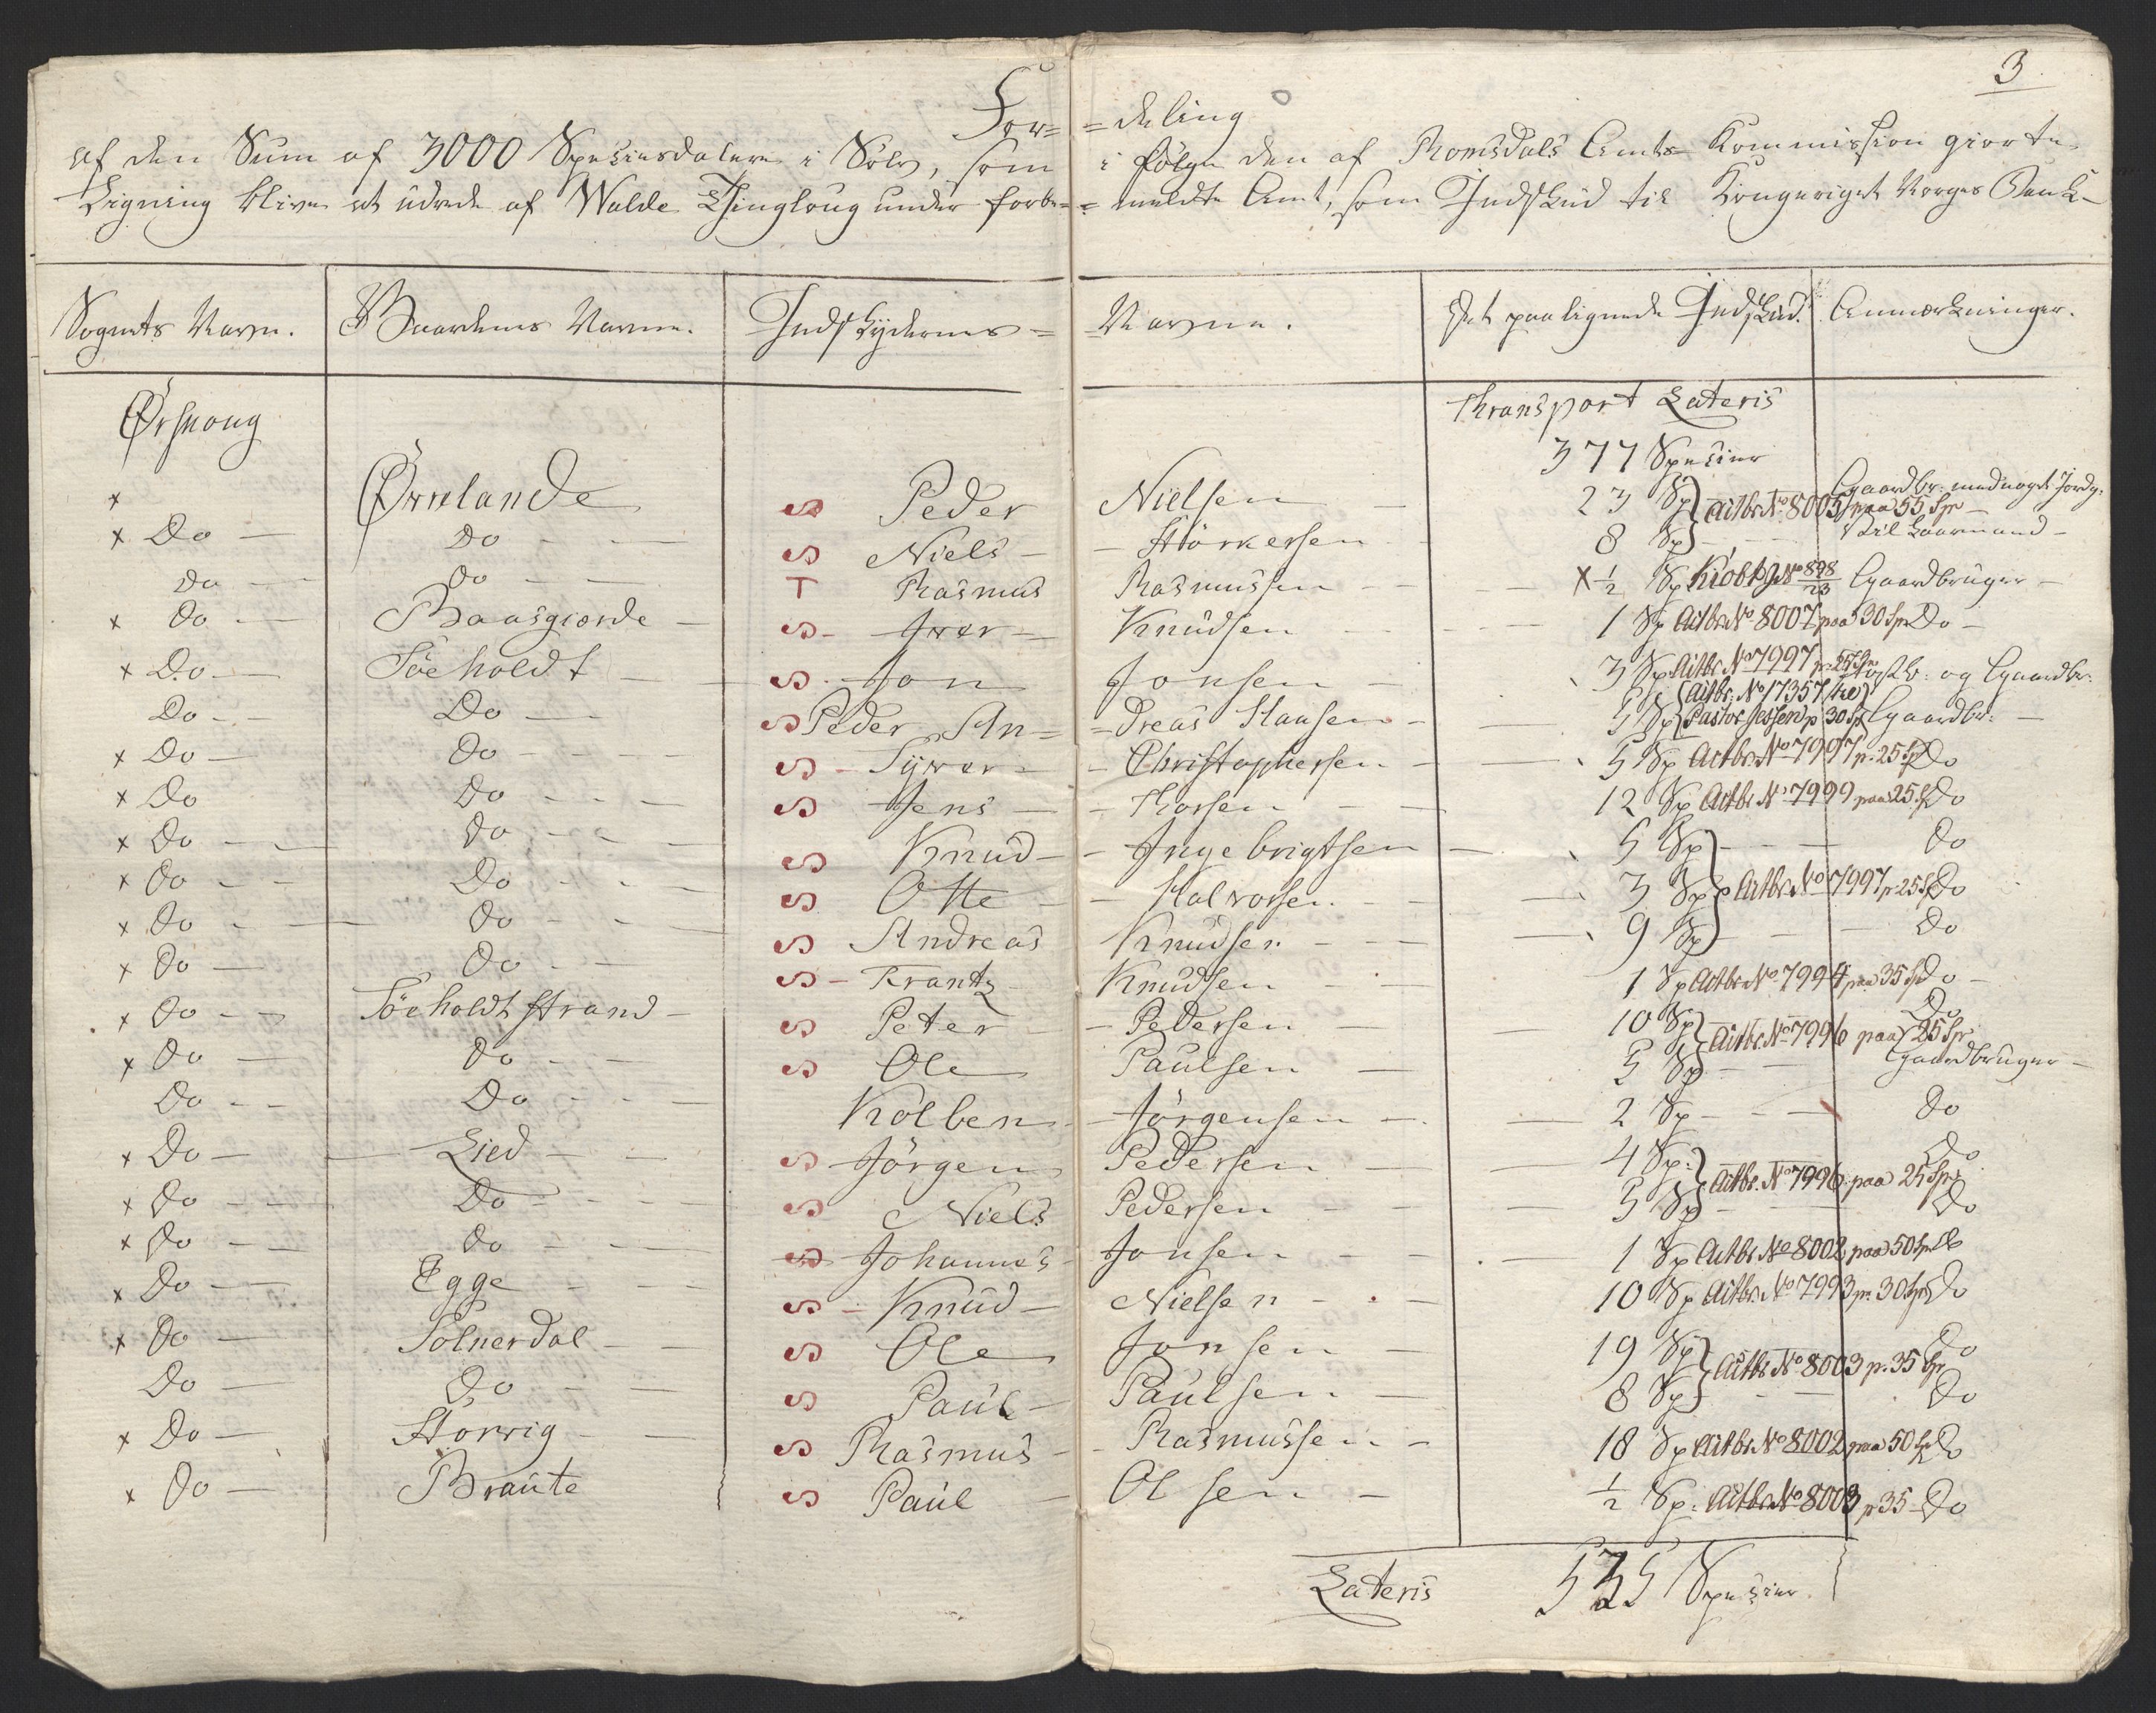 3
For= =deling
af den Sum af 3000 Speciesdalere i Sölv, som i fölge den af Romsdals Amts Kommission giorte
Ligning bliver at udrede af Walde Thinglaug under forbe= =meldte Amt, som Indskud til Kongeriget Norges Bank
Sognets Navn. Gaardens Navne. Indskydernes= =Navne. Det paalignede Indskud. Anmærkninger.
Transport Lateris
Ørskoug 377 Specier
x Ørrelande S Peder Nielsen 23 Sp Actbr. No 8005 paa 55 Spr Gaardbr: med noget Jordg:
x Do Do S Niels Störkersen 8 Sp Vilkaarmand
Do Do T Rasmus Rasmussen x ½ Sp No 898/23 Gaardbruger
x Do Baasgiærde S Iver Knudsen 1 Sp Actbr. No 8007 paa 30 Spr Do
x Do Söeholdt S Jon Jonsen 3 Sp Actbr. No 7997 p. 25 Spr og Gaardbr:
Do Do S Peder An= =dreas Hansen 5 Sp (Actbr. No 17357 til
Pastor Jessen) p 30 Sp Gaardbr:
x Do Do S Syver Christophersen 5 Sp Actbr. No 7997 p. 25 Sp Do
x Do Do S Jens Thorsen 12 Sp Actbr. No 7999 paa 25 S Do
x Do Do S Knud Ingebrigtsen 5 Sp Do
x Do Do S Otte Halvorsen 3 Sp Actbr. No 7997 p 25 S Do
x Do Do S Andreas Knudsen 9 Sp Do
x Do Do S Frantz Knudsen 1 Sp Actbr. No 7994 paa 35 Sp Do
x Do Söeholdtstrand S Peter Pedersen 10 Sp Actbr. No 7996 paa 25 Spr Do
x Do Do S Ole Paulsen 5 Sp Gaardbruger
Do Do Kolben Jörgensen 2 Sp Do
x Do Lied S Jörgen Pedersen 4 Sp: Actbr. No 7996 paa 25 Spr Do
x Do Do S Niels Pedersen 5 Sp Do
x Do Do S Johannes Jonsen 1 Sp Actbr No 8002 paa 50 Spr Do
x Do Egge S Knud Nielsen 10 Sp Actbr. No 7993 p. 30 Spr Do
x Do Solnerdal S Ole Jonsen 19 Sp Actbr. No 8003 p. 35 Spr Do
Do Do S Paul Paulsen 8 Sp Do
x Do Störvig S Rasmus Rasmussen 18 Sp Actbr. No 8002 paa 50 Sp Do
x Do Braute S Paul Olsen ½ Sp: Actbr. No 8003 p 35 Do
Lateris 535 Specier